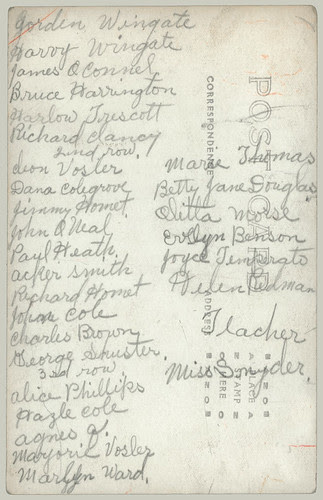 Gorden Wingate
Harry Wingate
James O Connel
Bruce Harrington
Harlow Truscott
Richard Clancy
2nd row.
Leon Vosler
Dana Colegrove
Jimmy Homet
John O Neal
Paul Heath
acker smith
Richard Homet
John Cole
Charles Brown
George Shuster.
3rd row.
alice Phillips
Hazle Cole
agnes
Marjorie Vosler
Marlyn Ward.
Marie Thomas
Betty Jane Douglas
Letta Morse
Evelyn Benson
Joyce Temperato
Helen Redman
Teacher
Miss Snyder.
POST CARD
CORRESPONDENCE
ADDRESS
PLACE
STAMP
HERE